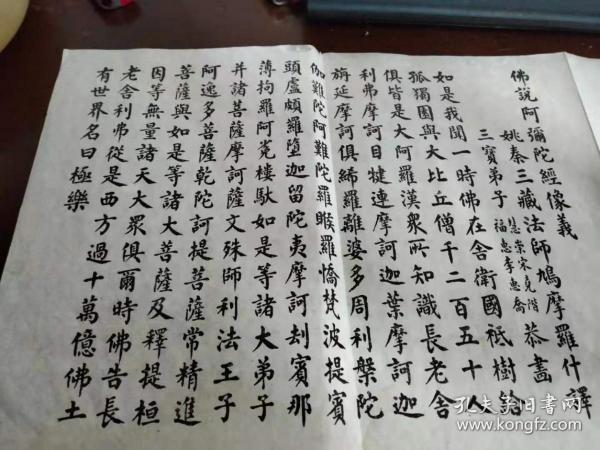 佛說阿彌陀經像義
姚秦三藏法師鳩摩羅什譯
三寶弟子 恭畫
如是我聞一時佛在舍衛國祇樹給
孤獨園與大比丘僧千二百五十人
俱皆是大阿羅漢衆所知識長老舍
利弗摩訶目犍連摩訶迦葉摩訶迦
旃延摩訶俱絺羅離婆多周利槃陀
伽難陀阿難陀羅睺羅憍梵波提賓
頭盧頗羅墮迦留陀夷摩訶劫賓那
薄拘羅阿㝹樓馱如是等諸大弟子
并諸菩薩摩訶薩文殊師利法王子
阿逸多菩薩乾陀訶提菩薩常精進
菩薩與如是等諸大菩薩及釋提桓
因等無量諸天大衆俱爾時佛告長
老舍利弗從是西方過十萬億佛土
有世界名曰極樂
孔夫子旧书网
www.kongfz.com